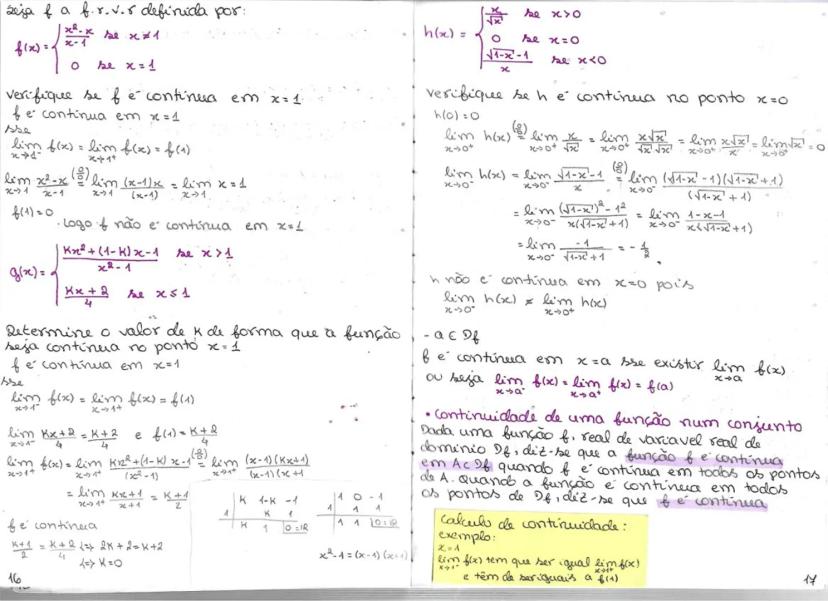 Seja f a f.r.v.r definida por:
f(x) = { x²-x / x-1 se x≠1
0 se x=1
verifique se f é contínua em x=1
f é contínua em x=1
sse
lim x→1⁻ f(x) = lim x→1⁺ f(x) = f(1)
lim x→1 x²-x / x-1 (0/0)= lim x→1 (x-1)x / (x-1) = lim x→1 x = 1
f(1)=0
Logo f não é contínua em x=1
g(x) = { Kx²+(1-K)x-1 / x²-1 se x>1
Kx+2 / 4 se x≤1
Determine o valor de K de forma que a função
seja contínua no ponto x=1
f é contínua em x=1
sse
lim x→1⁻ f(x) = lim x→1⁺ f(x) = f(1)
lim x→1⁻ Kx+2 / 4 = K+2 / 4 e f(1) = K+2 / 4
lim x→1⁺ f(x) = lim x→1⁺ Kx²+(1-K)x-1 / (x²-1) (0/0)= lim x→1⁺ (x-1)(Kx+1) / (x-1)(x+1
= lim x→1⁺ Kx+1 / x+1 = K+1 / 2
f é contínua
K+1 / 2 = K+2 / 4 (=) 2K+2=K+2
(=) K=0
K 1-K -1
1 K 1
K 1 0=R
1 0 -1
1 1 1
1 1 0=R
x²-1=(x-1)(x+1)
16
h(x) = { x / √x se x>0
0 se x=0
√1-x -1 / x se x<0
verifique se h é contínua no ponto x=0
h(0)=0
lim x→0⁺ h(x) (0/0)= lim x→0⁺ x / √x = lim x→0⁺ x√x / √x √x = lim x→0⁺ x√x / x = lim x→0⁺ √x = 0
lim x→0⁻ h(x) = lim x→0⁻ √1-x -1 / x (0/0)= lim x→0⁻ (√1-x -1)(√1-x +1) / (√1-x +1)
= lim x→0⁻ (√1-x)²-1² / x(√1-x +1) = lim x→0⁻ 1-x-1 / x(√1-x +1)
= lim x→0⁻ -1 / √1-x +1 = -1/2
h não é contínua em x=0 pois
lim x→0⁻ h(x) ≠ lim x→0⁺ h(x)
- a ∈ Df
f é contínua em x=a sse existir lim x→a f(x)
ou seja lim x→a⁻ f(x) = lim x→a⁺ f(x) = f(a)
• continuidade de uma função num conjunto
Dada uma função f, real de variavel real de
domínio Df, diz-se que a função f é contínua
em A⊂Df quando f é contínua em todos os pontos
de A. quando a função é contínua em todos
os pontos de Df, diz-se que f é contínua
calculo de continuidade:
exemplo:
x=1
lim x→1⁻ f(x) tem que ser igual lim x→1⁺ f(x)
e têm de ser iguais a f(1)
17